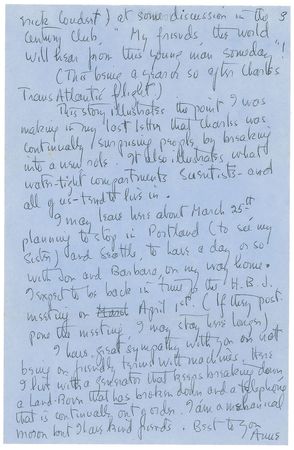 3
Nick Loudest) at some discussion in the
Century Club, "My friends this world
will hear from this young man someday"!
(This being a year or so after Charles
TransAtlantic flight)
This story illustrates the point I was
making in my last letter that Charles was
continually surprising people by breaking
into a new role. It also illustrates what
water-tight compartments scientists - and
all of us - tend to live in.
I may leave here about March 25th
planning to stop in Portland (to see my
sister) and Seattle, to have a day or so
with Jon and Barbara, on my way home.
I expect to be back in time for the H.B.J.
meeting on April 1st. (If they post-
pone the meeting, I may stay here longer)
I have great sympathy with you on not
being on friendly terms with machines. Here
I live with a generator that keeps breaking down,
a Land-Rover that has broken down and a telephone
that is continually out of order. I am a mechanical
moron but I have kind friends. Best to you
Anne